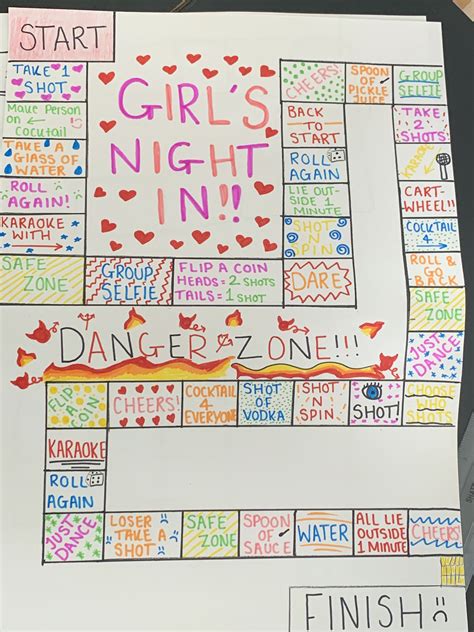 START
TAKE 1
SHOT
Make Person
on ←
Cocktail
TAKE A
GLASS OF
WATER
ROLL
AGAIN!
KARAOKE
WITH →
SAFE
ZONE
GIRL'S
NIGHT
IN!!
GROUP
SELFIE
FLIP A COIN
HEADS = 2 SHOTS
TAILS = 1 SHOT
DARE
SHOT
N
SPIN
LIE OUT-
SIDE 1
MINUTE
ROLL
AGAIN
BACK
TO
START
CHEERS!
SPOON
OF
PICKLE
JUICE
GROUP
SELFIE
TAKE
2
SHOTS
KARAOKE
CART-
WHEEL!!
COCKTAIL
4 →
ROLL &
GO
BACK
SAFE
ZONE
JUST
DANCE
DANGER ZONE!!!
CHOOSE
WHO
SHOTS
SHOT!
SHOT
N
SPIN
SHOT
OF
VODKA
COCKTAIL
4
EVERYONE
CHEERS!
FLIP
A
COIN
KARAOKE
ROLL
AGAIN
JUST
DANCE
LOSER
TAKE A
SHOT
SAFE
ZONE
SPOON
OF
SAUCE
WATER
ALL LIE
OUTSIDE
1 MINUTE
CHEERS
FINISH